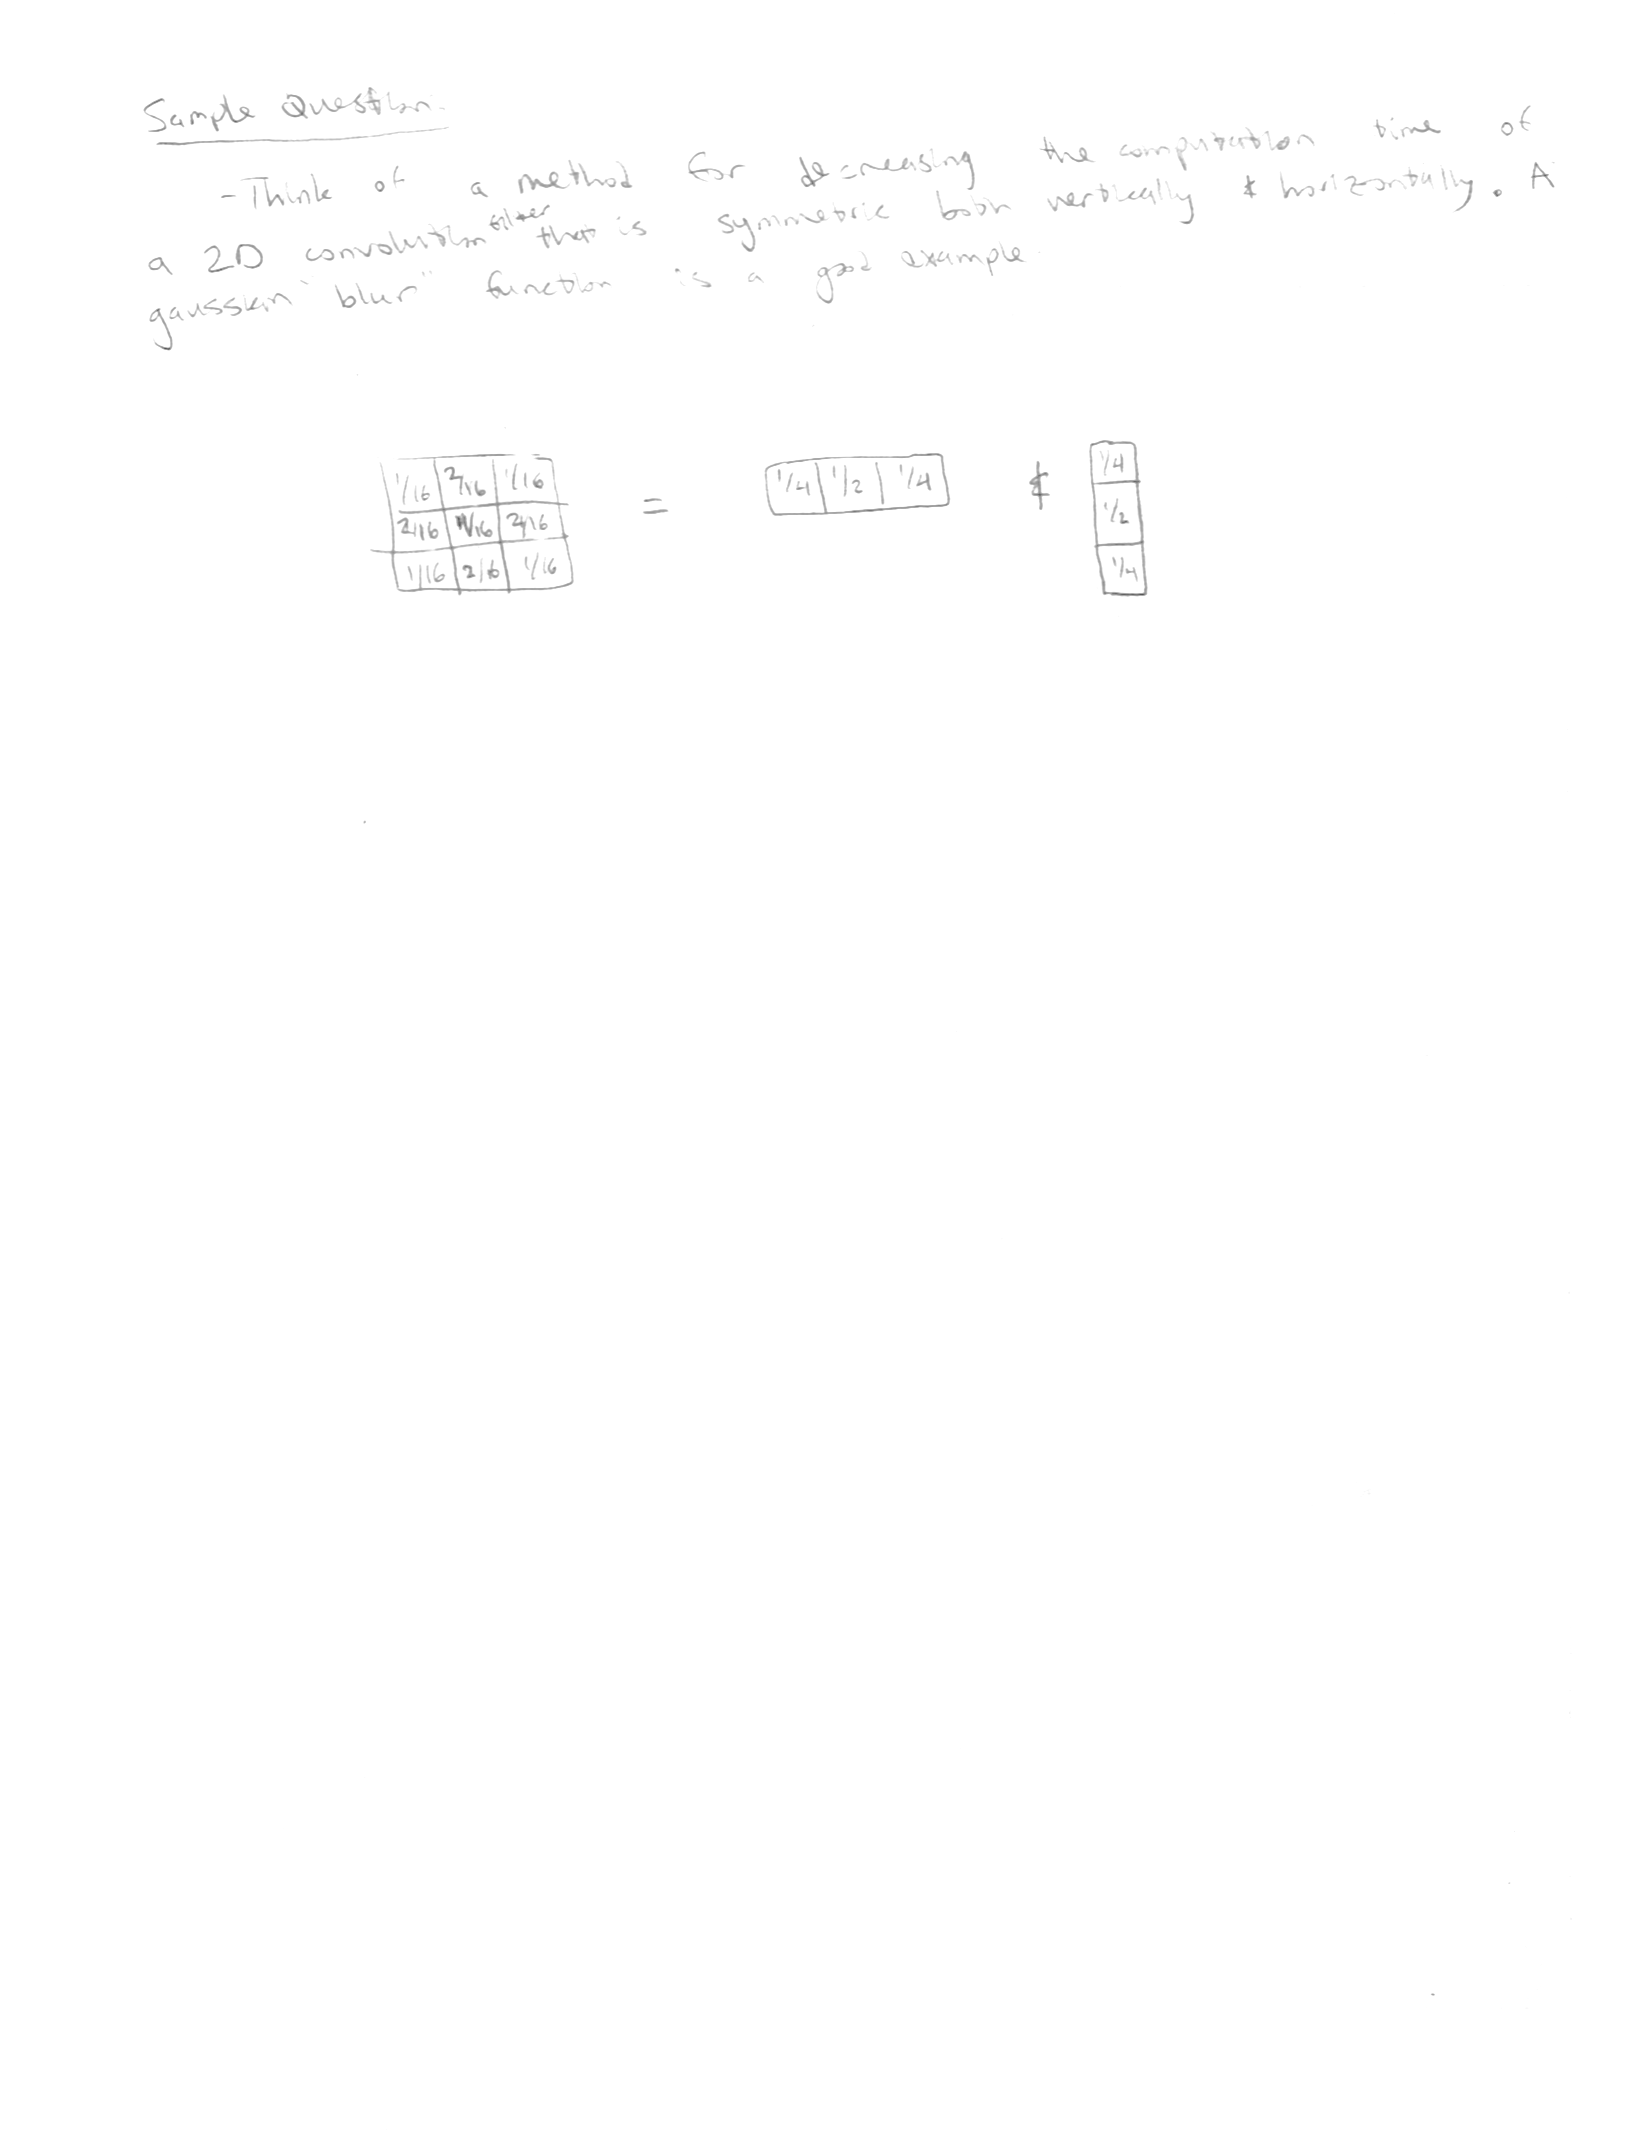 Sample Question:
- Think of a method for decreasing the computation time of
a 2D convolution filter that is symmetric both vertically & horizontally. A
gaussian "blur" function is a good example.
1/16 2/16 1/16 = 1/4 1/2 1/4 & 1/4
2/16 4/16 2/16 1/2
1/16 2/16 1/16 1/4